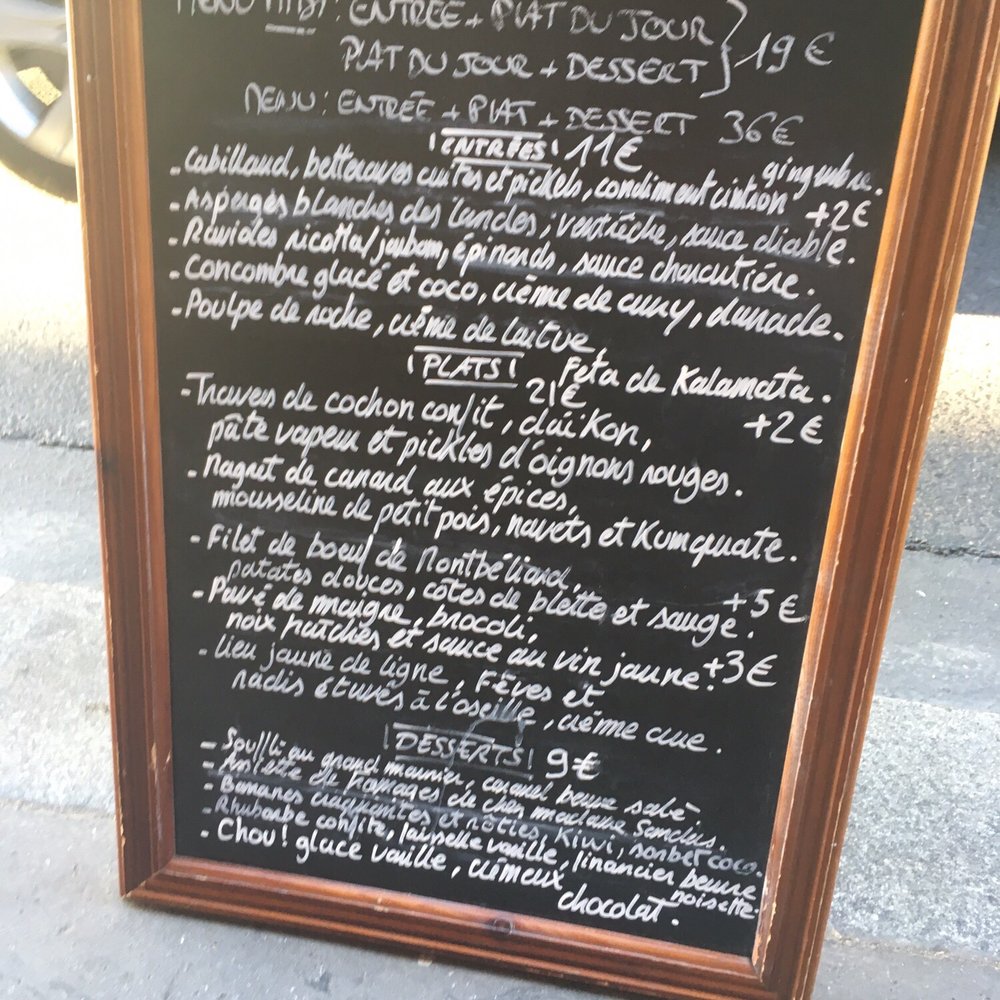 MENU MIDI : ENTRÉE + PLAT DU JOUR
PLAT DU JOUR + DESSERT } 19 €
MENU : ENTRÉE + PLAT + DESSERT 36 €
ENTRÉES 11 €
- Cabillaud, betteraves cuites et pickels, condiment citron gingembre.
- Asperges blanches des Landes, ventrèche, sauce diable. +2 €
- Ravioles ricotta/jambon, épinards, sauce charcutière.
- Concombre glacé et coco, crème de curry, dunade.
- Poulpe de roche, crème de laitue,
Feta de Kalamata.
+2 €
PLATS
21 €
- Travers de cochon confit, daïkon,
pâte vapeur et pickles d'oignons rouges.
- Magret de canard aux épices,
mousseline de petit pois, navets et Kumquate.
- Filet de boeuf de Montbéliard,
patates douces, côtes de blette et sauge. +5 €
- Pavé de maigre, brocoli,
noix fraîches et sauce au vin jaune. +3 €
- Lieu jaune de ligne, Fèves et
radis étuvés à l'oseille, crème crue.
DESSERTS 9 €
- Soufflé au grand marnier, caramel beurre salé.
- Assiette de fromages de chez madame
- Bananes croquantes et rôties, Kiwi, sorbet coco.
- Rhubarbe confite, faisselle vanille, financier beurre
noisette.
- Chou ! glace vanille, crémeux
chocolat.